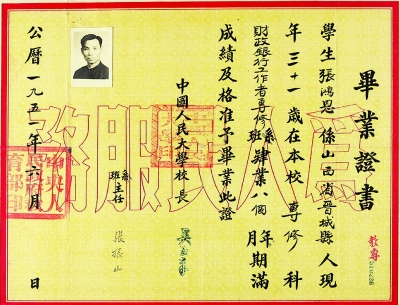 畢業證書
學生張鴻恩係山西省晉城縣人現
年三十一歲在本校專修科
財政銀行工作者專修班系肄業八個年月期滿
成績及格准予畢業此證
中國人民大學校長
班系主任
張振山
公曆一九五一年六月 日
為人民服務
中央人民政府教育部印
教專